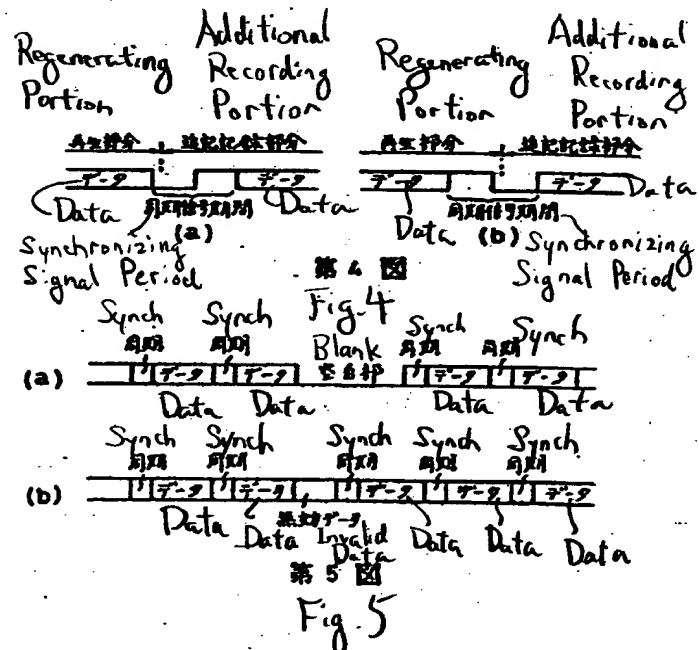 Regenerating Portion
Additional Recording Portion
Regenerating Portion
Additional Recording Portion
再生部分 追記記録部分
再生部分 追記記録部分
データ データ
データ データ
Data 同期信号期間 Data
Data 同期信号期間 Data
(a)
(b)
Synchronizing Signal Period
Synchronizing Signal Period
第 4 図
Fig. 4
Synch Synch Blank Synch Synch
同期 同期 空白部 同期 同期
(a) データ データ データ データ
Data Data Data Data
Synch Synch Synch Synch Synch
同期 同期 同期 同期 同期
(b) データ データ データ データ データ
無効データ
Data Data Invalid Data Data Data Data
第 5 図
Fig. 5